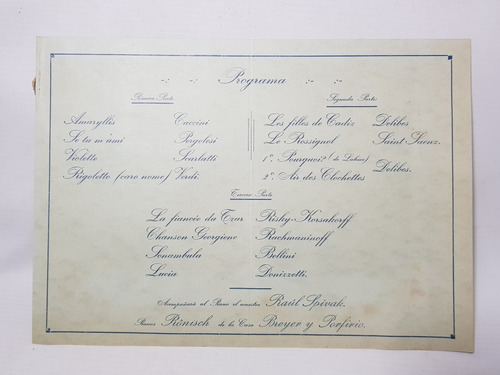 Programa
Primera Parte
Amaryllis Caccini
Se tu m'ami Pergolosi
Violette Scarlatti
Rigoletto (caro nome) Verdi.
Segunda Parte
Les filles de Cadiz Delibes
Le Rossignol Saint Saenz.
1º Pourquoi? (de Lakme)
2º Air des Clochettes Delibes.
Tercera Parte
La fiancée du Tzar Risky-Korsakorff
Chanson Georgiene Rachmaninoff
Sonambula Bellini
Lucia Donizzetti.
Acompañará al Piano el maestro Raúl Spivak.
Pianos Rönisch de la Casa Breyer y Porfirio.